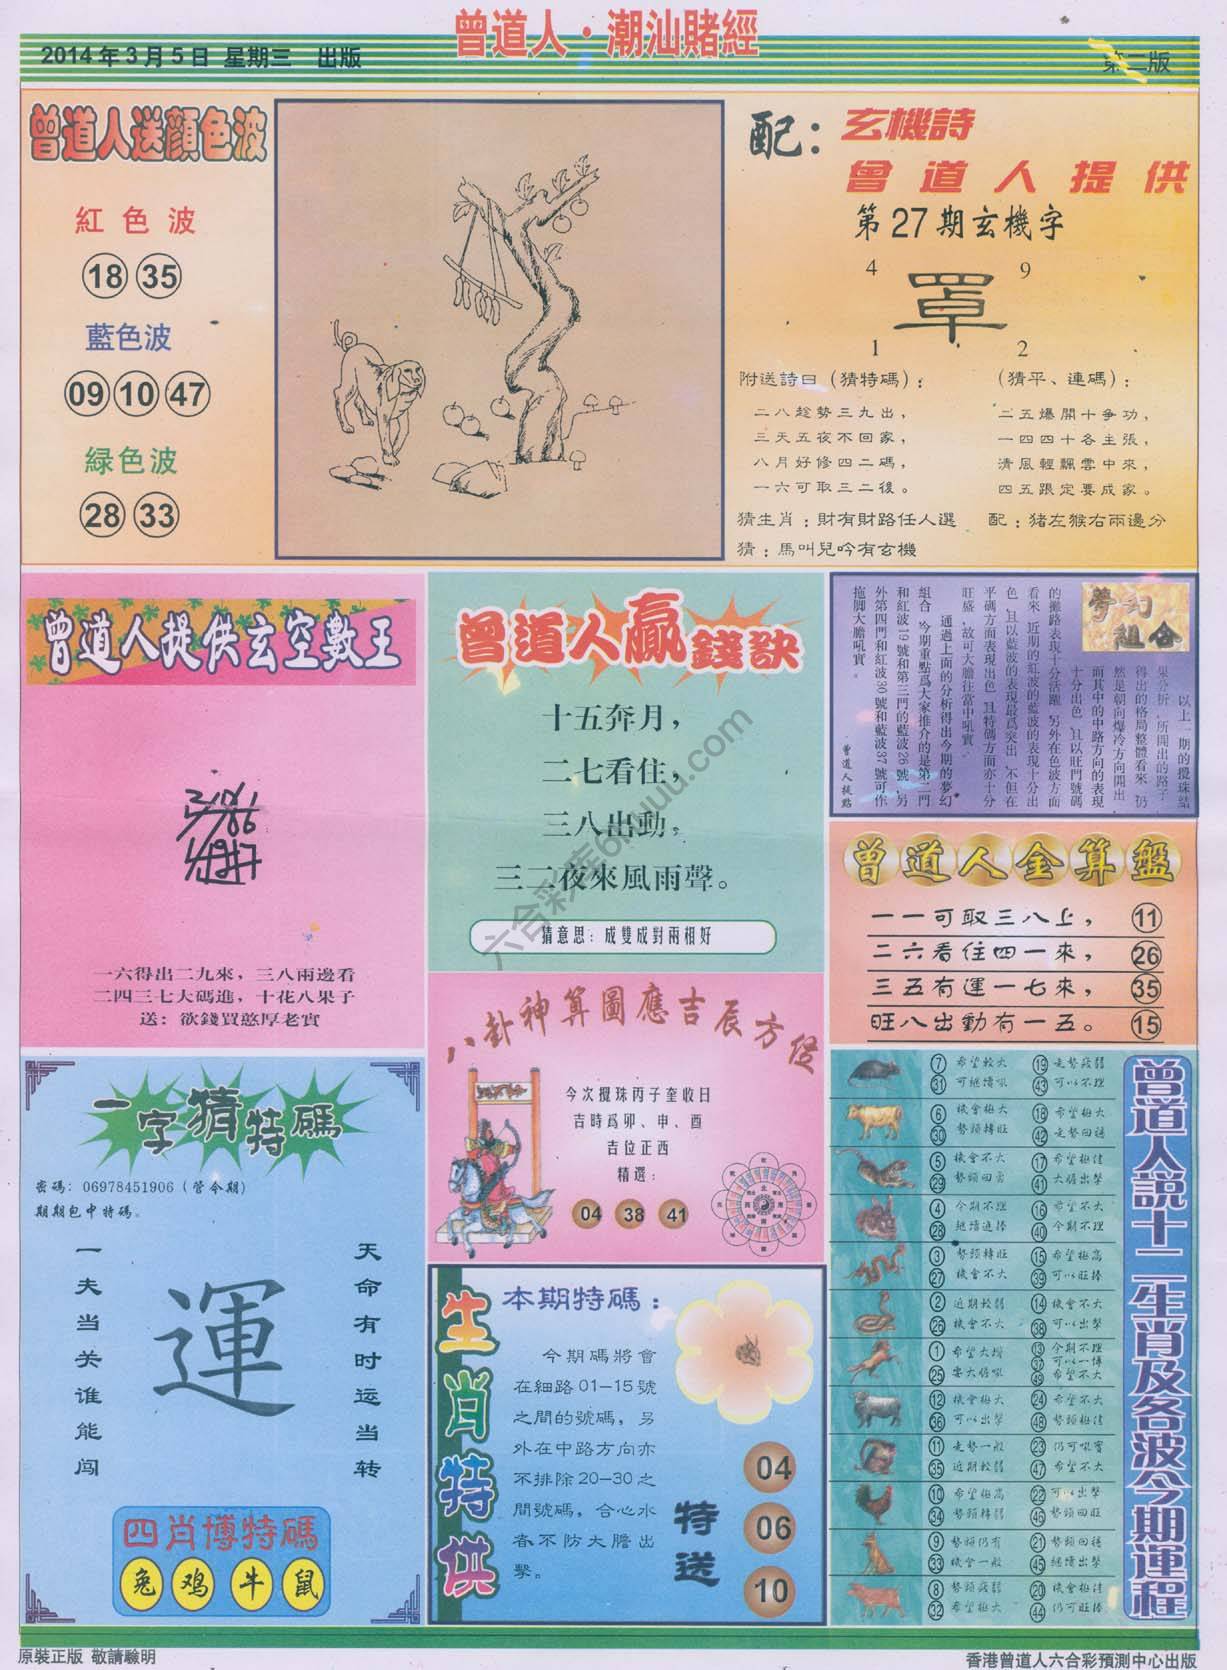 曾道人·潮汕賭經
2014年3月5日 星期三 出版
第二版
曾道人送顏色波
紅色波
18 35
藍色波
09 10 47
綠色波
28 33
配:
玄機詩
曾道人提供
第27期玄機字
4 9
罩
1 2
附送詩曰(猜特碼):
二八趁勢三九出,
三天五夜不回家,
八月好修四二碼,
一六可取三二後。
(猜平、連碼):
二五爆開十爭功,
一四四十各主張,
清風輕飄雲中來,
四五跟定要成家。
猜生肖:財有財路任人選
配:猪左猴右兩邊分
猜:馬叫兒吟有玄機
曾道人提供玄空數王
一六得出二九來,三八兩邊看
二四三七大碼進,十花八果子
送:欲錢買憨厚老實
曾道人贏錢訣
十五奔月,
二七看住,
三八出動,
三二夜來風雨聲。
猜意思:成雙成對兩相好
夢幻組合
以上一期的攪珠結
果分析,所開出的路子
得出的格局整體看來,仍
然是朝向爆冷方向開出,
而其中的中路方向的表現
十分出色,且以旺門號碼
的攤路表現十分活躍,另外在色波方面
看來,近期的紅波的藍波的表現十分出
色,且以藍波的表現最爲突出,不但在
平碼方面表現出色,且特碼方面亦十分
旺盛,故可大膽往當中吼實。
通過上面的分析得出今期的夢幻
組合,今期重點爲大家推介的是第二門
和紅波19號和第三門的藍波26號,另
外第四門和紅波30號和藍波37號可作
拖脚大膽吼實。
曾道人提點
曾道人金算盤
一一可取三八上, 11
二六看住四一來, 26
三五有運一七來, 35
旺八出動有一五。 15
八卦神算圖應吉辰方促
今次攪珠丙子奎收日
吉時爲卯、申、酉
吉位正西
精選:
04 38 41
一字猜特碼
密碼:06978451906(管令期)
期期包中特碼。
一夫当关谁能闯
運
天命有时运当转
四肖博特碼
兔 鸡 牛 鼠
生肖特供
本期特碼:
今期碼將會
在細路01-15號
之間的號碼,另
外在中路方向亦
不排除20-30之
間號碼,合心水
者不防大膽出
擊。
特送
04
06
10
曾道人説十二生肖及各波今期運程
7 希望較大 19 走勢疲弱
31 可繼續吼 43 可以不理
6 機會極大 18 希望極大
30 勢頭轉旺 42 走勢回穩
5 機會不大 17 希望極佳
29 勢頭回勇 41 大膽出擊
4 今期不理 16 希望不大
28 繼續追捧 40 今期不理
3 勢頭轉旺 15 希望極高
27 機會不大 39 可以旺捧
2 近期較弱 14 機會不大
26 機會不大 38 可以出擊
1 希望大增 13 今期不理
37 可以一博
25 宴大膽吼 49 希望不大
12 機會極大 24 希望不大
36 可以出擊 48 勢頭極佳
11 走勢一般 23 仍可吼實
35 近期較弱 47 希望不大
10 希望極高 22 可以出擊
34 勢頭轉弱 46 勢頭回旺
9 勢頭仍有 21 勢頭回穩
33 機會一般 45 繼續出擊
8 勢頭疲弱 20 機會極佳
32 希望極大 44 仍可旺捧
原裝正版 敬請驗明
香港曾道人六合彩預測中心出版